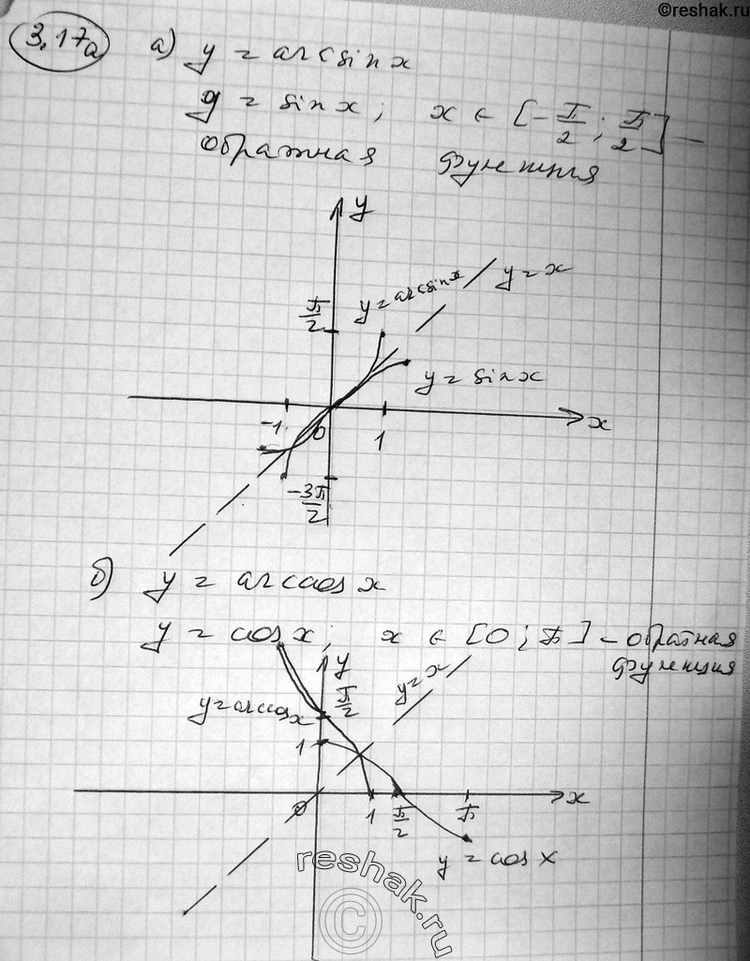 ©reshak.ru
3.17а
а) y = arcsin x
y = sin x; x ∈ [-π/2; π/2] –
обратная функция
y
y = arcsin x
y = x
π/2
y = sin x
-1 0 1 x
-3π/2
б) y = arccos x
y = cos x; x ∈ [0; π] – обратная
функция
y
y = x
y = arccos x
π/2
1
0 1 π/2 π x
y = cos x
reshak.ru
©